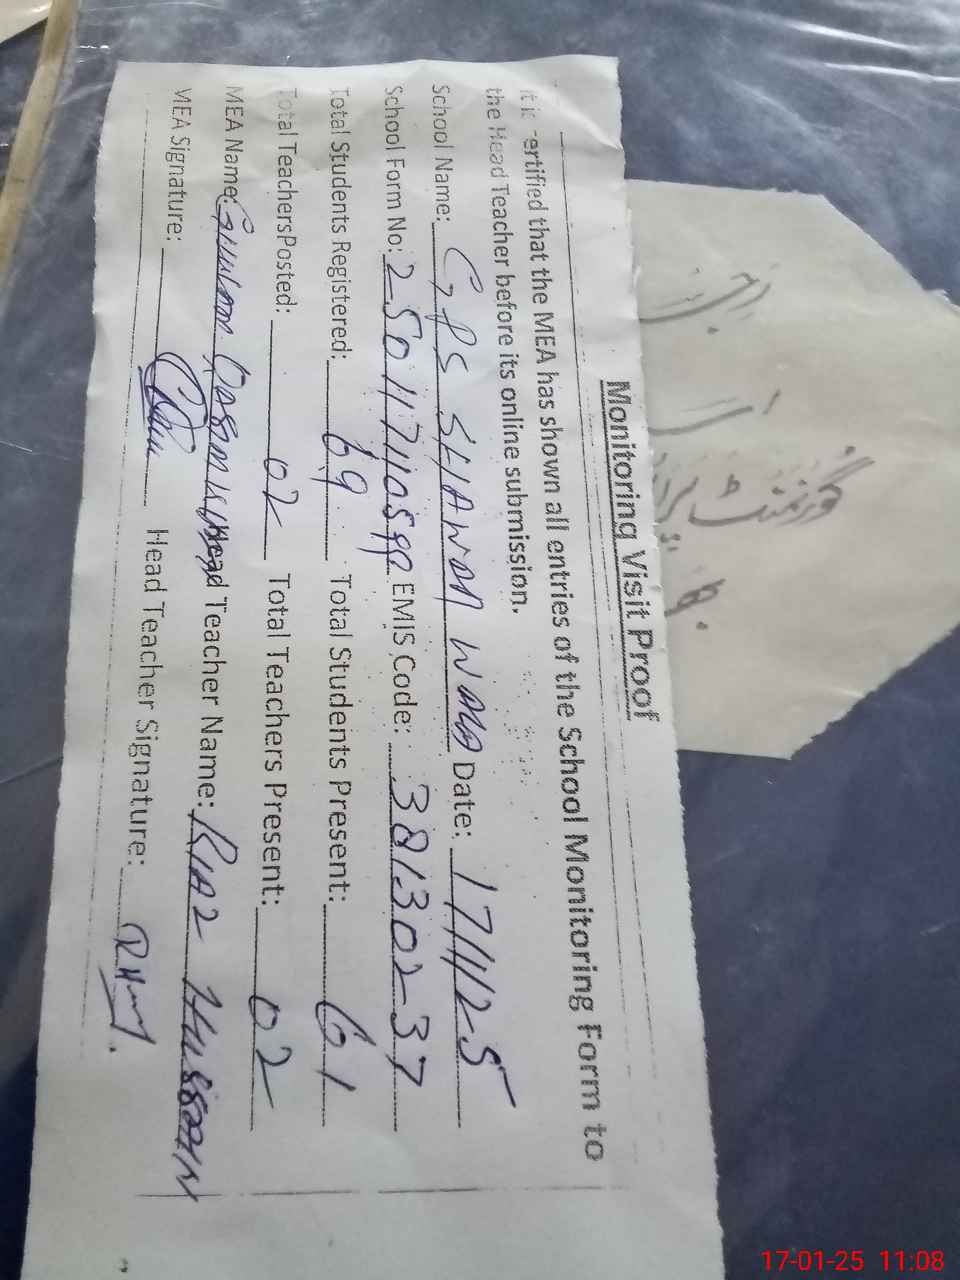 Monitoring Visit Proof
It is certified that the MEA has shown all entries of the School Monitoring Form to
the Head Teacher before its online submission.
School Name: GPS SHAWAN WALA Date: 17/1/25
School Form No: EMIS Code: 38130237
Total Students Registered: 69 Total Students Present: 61
Total TeachersPosted: 02 Total Teachers Present: 02
MEA Name: Ghulam Head Teacher Name: RIAZ HUSSAIN
MEA Signature: Head Teacher Signature:
گورنمنٹ
17-01-25 11:08